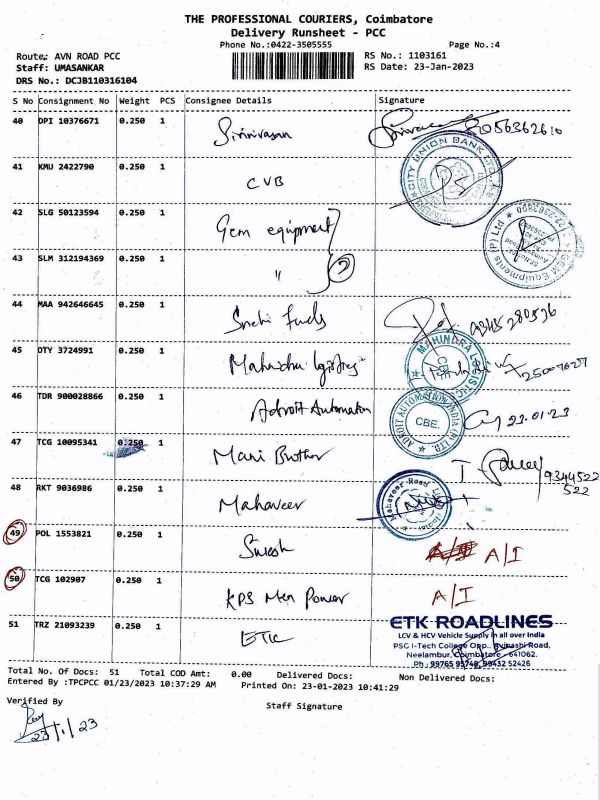 THE PROFESSIONAL COURIERS, Coimbatore
Delivery Runsheet - PCC
Phone No.:0422-3505555
Page No.:4
Route: AVN ROAD PCC
RS No.: 1103161
Staff: UMASANKAR
RS Date: 23-Jan-2023
DRS No.: DCJB110316104
S No Consignment No Weight PCS Consignee Details Signature
40 DPI 10376671 0.250 1 Srinivasan 8056362610
41 KMU 2422790 0.250 1 CVB
CITY UNION BANK LTD
42 SLG 50123594 0.250 1 Gem equipment
GEM Equipments (P) Ltd
43 SLM 312194369 0.250 1 " 2
44 MAA 942646645 0.250 1 Snehi funds 9345280536
45 DTY 3724991 0.250 1 Mahindra logistics
MAHINDRA LOGISTICS
CBE
46 TDR 900028866 0.250 1 Adroit Automation 23.01.23
ADROIT AUTOMATION INDIA (P) LTD.
CBE.
47 TCG 10095341 0.250 1 Mani Brother 9344522
522
48 RKT 9036986 0.250 1 Mahaveer
49 POL 1553821 0.250 1 Suresh A/I
50 TCG 102907 0.250 1 KPS Men Power A/I
51 TRZ 21093239 0.250 1 ETK
ETK ROADLINES
LCV & HCV Vehicle Supply in all over India
PSG I-Tech College Opp., Avinashi Road,
Neelambur, Coimbatore - 641062.
Ph : 99765 95748, 99432 52426
Total No. Of Docs: 51 Total COD Amt: 0.00 Delivered Docs: Non Delivered Docs:
Entered By :TPCPCC 01/23/2023 10:37:29 AM Printed On: 23-01-2023 10:41:29
Verified By
Staff Signature
23/1/23